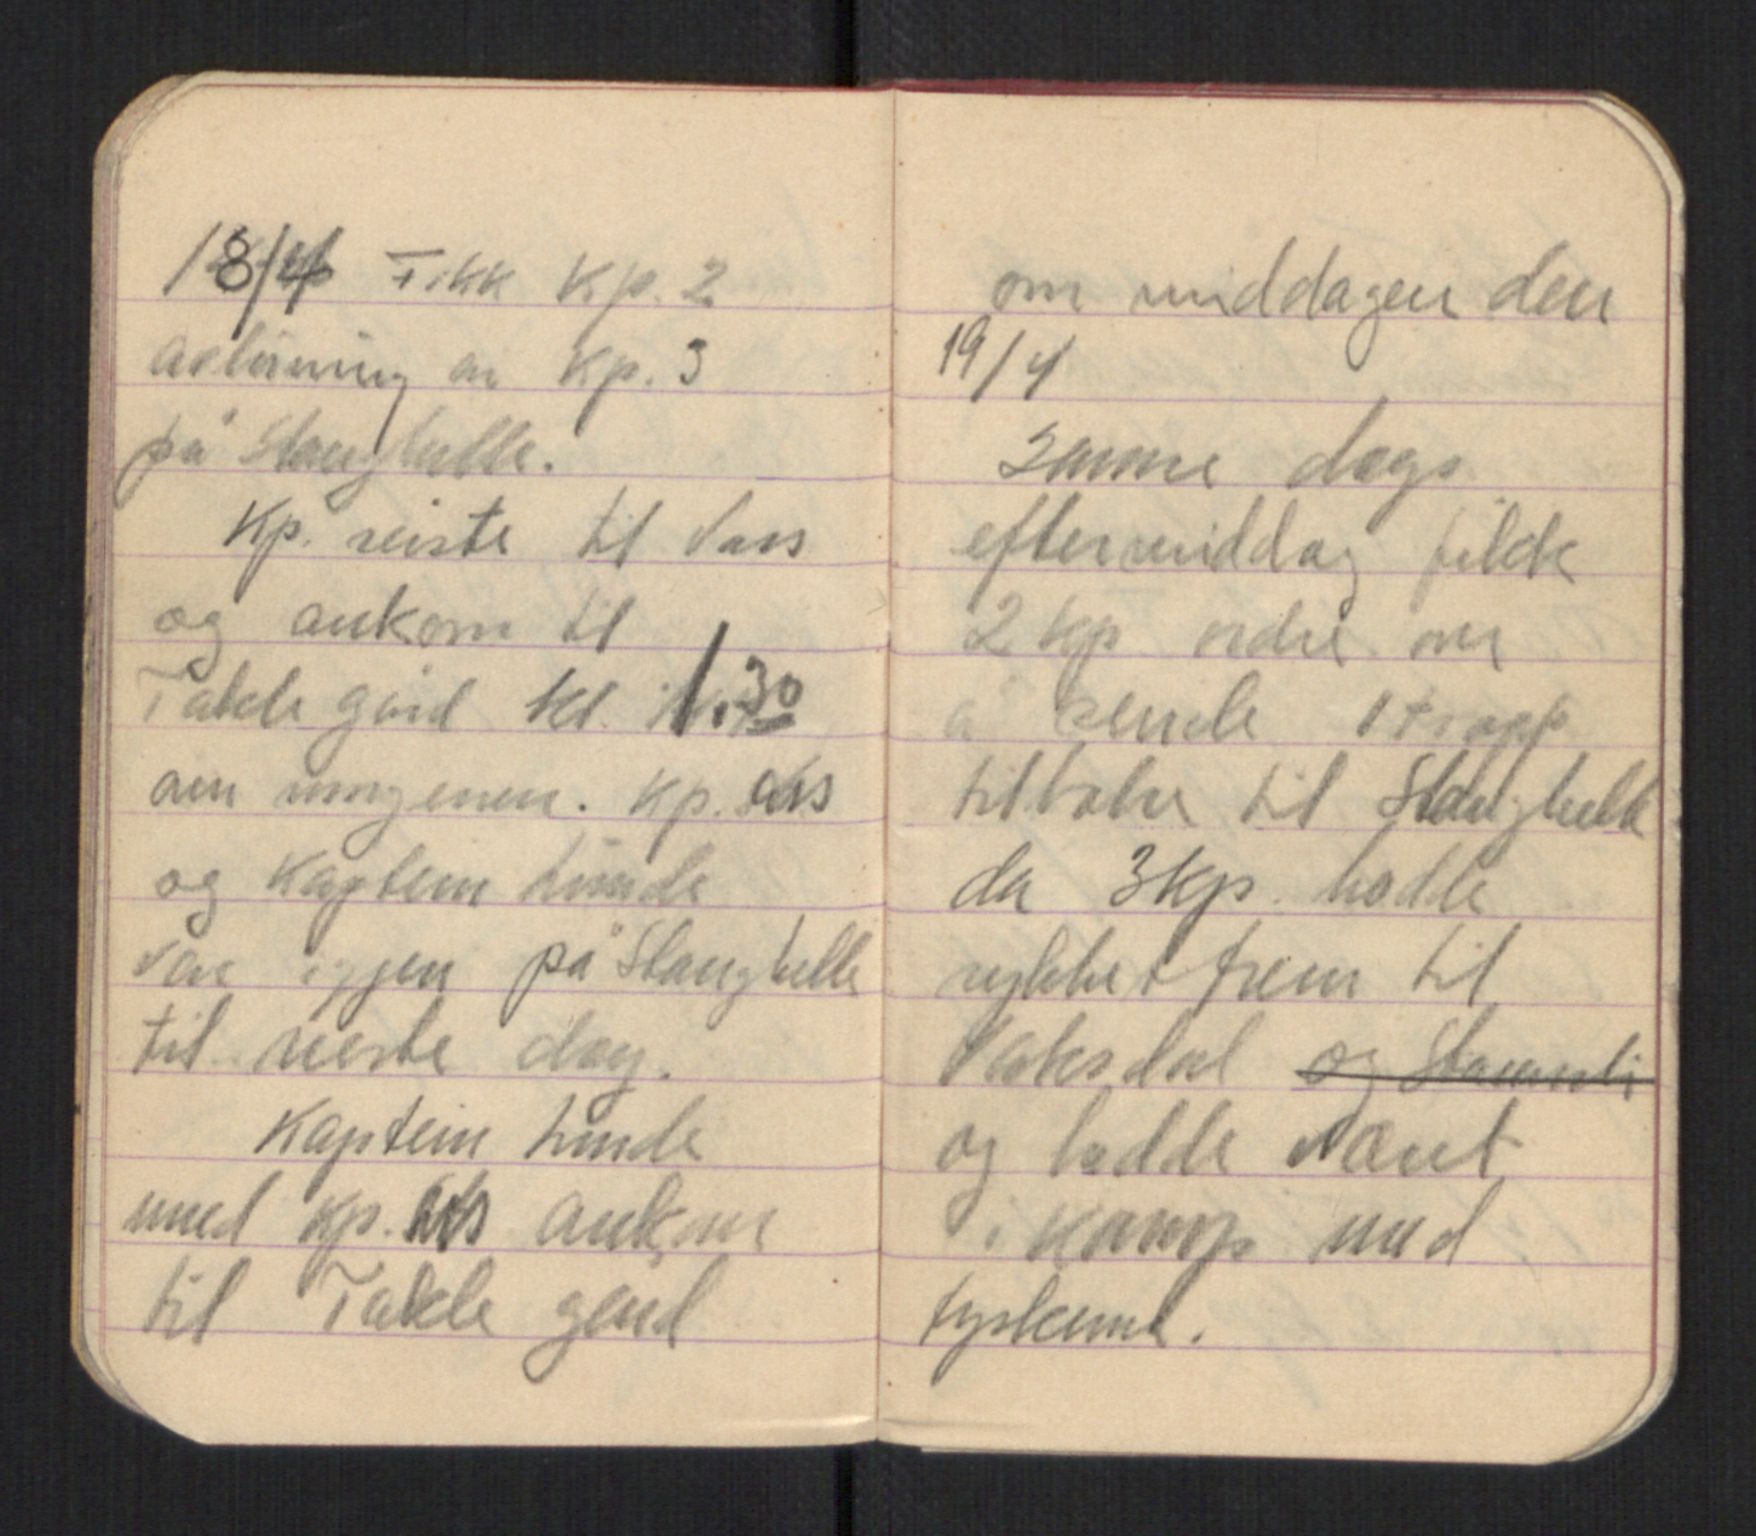 18/4 Fikk Kp. 2
avløsning av Kp. 3
på Stanghelle.
Kp. reiste til Voss
og ankom til
Takle gård kl. 1.30
om morgenen. Kp.
og Kaptein Linde
var igjen på Stanghelle
til neste dag.
Kaptein Linde
med Kp. ankom
til Takle gård
om middagen den
19/4
Samme dags
eftermiddag fikk
2 kp ordre om
å sende 1 tropp
tilbake til Stanghelle
da 3 kp. hadde
rykket frem til
Vaksdal og
og hadde været
i kamp med
tyskerne.